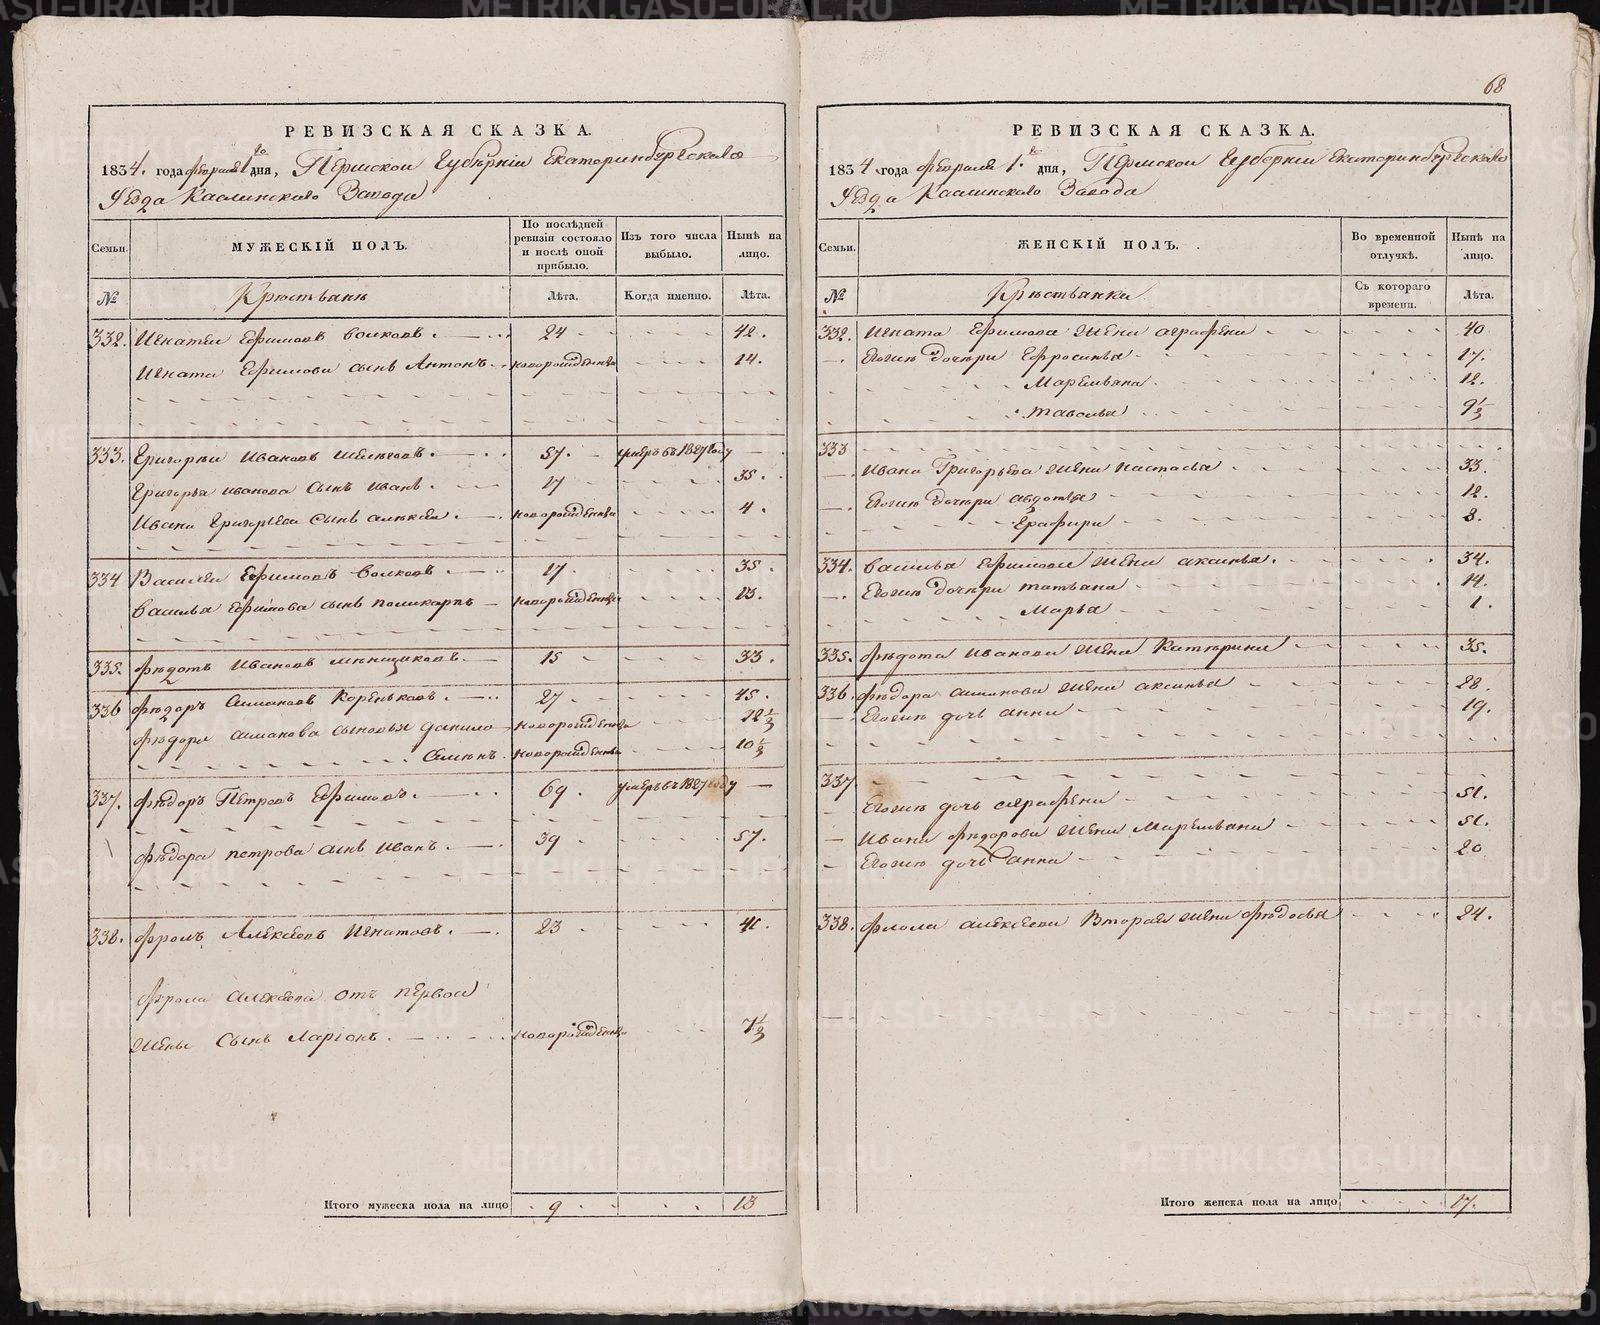 68
РЕВИЗСКАЯ СКАЗКА.
1834. года февраля 1го дня, Пермской Губѣрніи Екатеринбургскаго
Уезда Каслинскаго Завода
Семьи.
МУЖЕСКІЙ ПОЛЪ.
По послѣдней ревизіи состояло и послѣ оной прибыло.
Изъ того числа выбыло.
Нынѣ на лицо.
№ Крѣстьянѣ Лѣта. Когда именно. Лѣта.
332. Игнатеи Ефимовъ Волковъ. 24 42.
Игната Ефимова сынъ Антонъ новорожденны 14.
333. Григорѣи Ивановъ 57. умеръ въ 1827 году —
Григорья Иванова Сынъ Иванъ. 17 35.
Ивана Григорьева Сынъ Алѣксеи. новорожденны 4.
334 Василеи Ефимовъ Волковъ. 17 35.
Василья Ефимова сынъ поликарпъ новорожденны 13.
335. Фѣдотъ Ивановъ мѣнщиковъ. 15 33.
336 Фѣдоръ Симановъ Кореньковъ. 27 45.
Фѣдора Симанова сыновья данило новорожденны 12 ½
Сѣмѣнъ. новорожденны 10 ½
337. Фѣдоръ Петровъ Ефимовъ. 69. умеръ въ 1827 году —
Фѣдора петрова сынъ Иванъ. 39 57.
338. Фролъ Алексеевъ Игнатовъ. 23 41.
Фрола Алексеева отъ первой
Жены Сынъ Ларіонъ. новорожденны 7½
Итого мужеска пола на лицо 9 13
РЕВИЗСКАЯ СКАЗКА.
1834 года февраля 1. дня, Пермской Губерніи Екатеринбургскаго
Уезда Каслинскаго Завода
Семьи.
ЖЕНСКІЙ ПОЛЪ.
Во временной отлучкѣ.
Нынѣ на лицо.
№ Крѣстьянки. Съ котораго времени. Лѣта.
332. Игната Ефимова Жена аграфена 40
Егожъ дочери Ефросинья 17.
Маремьяна 12.
9½
333
Ивана Григорьева Жена настасья 33.
Егожъ дочери авдотья 12.
8.
334. Василья Ефимова Жена аксинья. 34.
Егожъ дочери татьяна 14.
Марья 1.
335. Фѣдота Иванова Жена Катѣрина 35.
336. Фѣдора Симанова Жена аксинья 28.
Егожъ дочь анна 19.
337.
Егожъ дочь аграфена 51.
Ивана Фѣдорова Жена Маремьяна 51.
Егожъ дочь анна 20
338. Фрола алексеева Вторая Жена Фѣдосья 24.
Итого женска пола на лицо 17.
METRIKI.GASO-URAL.RU